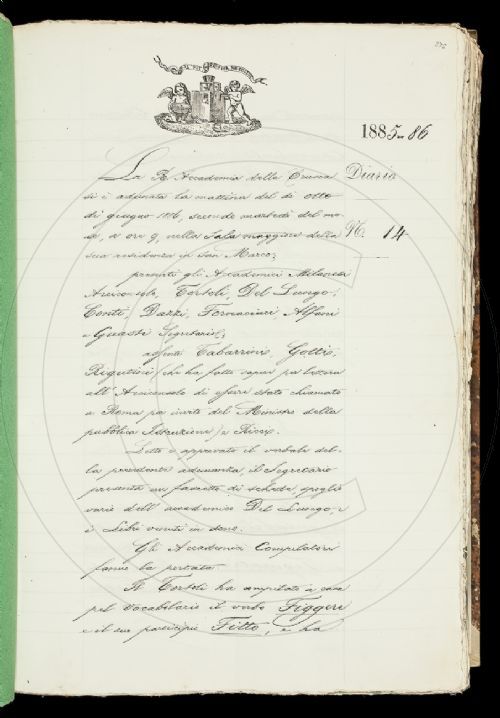 275
1885-86
La R. Accademia della Crusca
Diario
si è adunata la mattina del dì otto
di giugno 1886, secondo martedì del me-
se, a ore 9, nella Sala maggiore della
N. 14
sua residenza in San Marco;
presenti gli Accademici Milanesi
Arciconsolo, Tortoli, Del Lungo,
Conti, Dazzi, Fornaciari, Alfani
e Guasti Segretario;
assenti Tabarrini, Gotti,
Rigutini (che ha fatto saper per lettera
all'Arciconsolo di essere stato chiamato
a Roma per invito del Ministro della
pubblica Istruzione) e Ricci.
Letto e approvato il verbale del-
la precedente adunanza, il Segretario
presenta un fascetto di schede spoglio
vario dell'accademico Del Lungo, e
i Libri venuti in dono.
Gli Accademici Compilatori
fanno la portata.
Il Tortoli ha compilato a casa
pel Vocabolario il verbo Figgere
e il suo participio Fitto, e ha